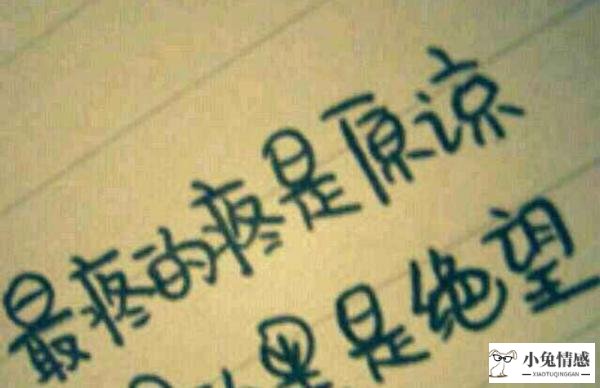 最疼的疼是原谅
黑是绝望
小兔情感
XIAOTUQINGGAN